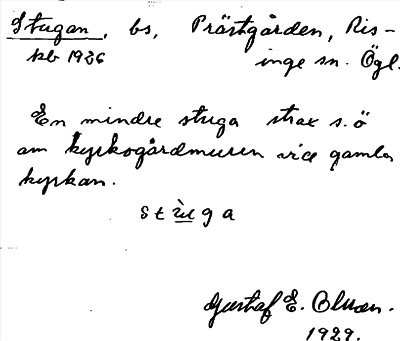 Stugan, bs, Prästgården, Ris-
kb 1926 inge sn. Ögl.
En mindre stuga strax s.ö
om kyrkogårdmuren vid gamla
kyrkan.
stùga
Gustaf E.
1929.